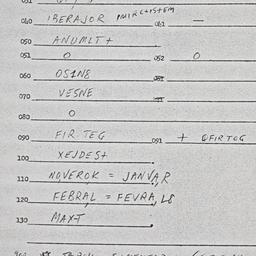 040 IBERAJOR 041 —
050 ANUMLT +
051 O 052 O
060 OS1N8
070 VESNE
080 O
090 FIR TEG 091 + OFIRTOG
100 XEJDES+
110 NOVEROK = JANVAR
120 FEBRAL = FEVRA, L8
130 MAXT